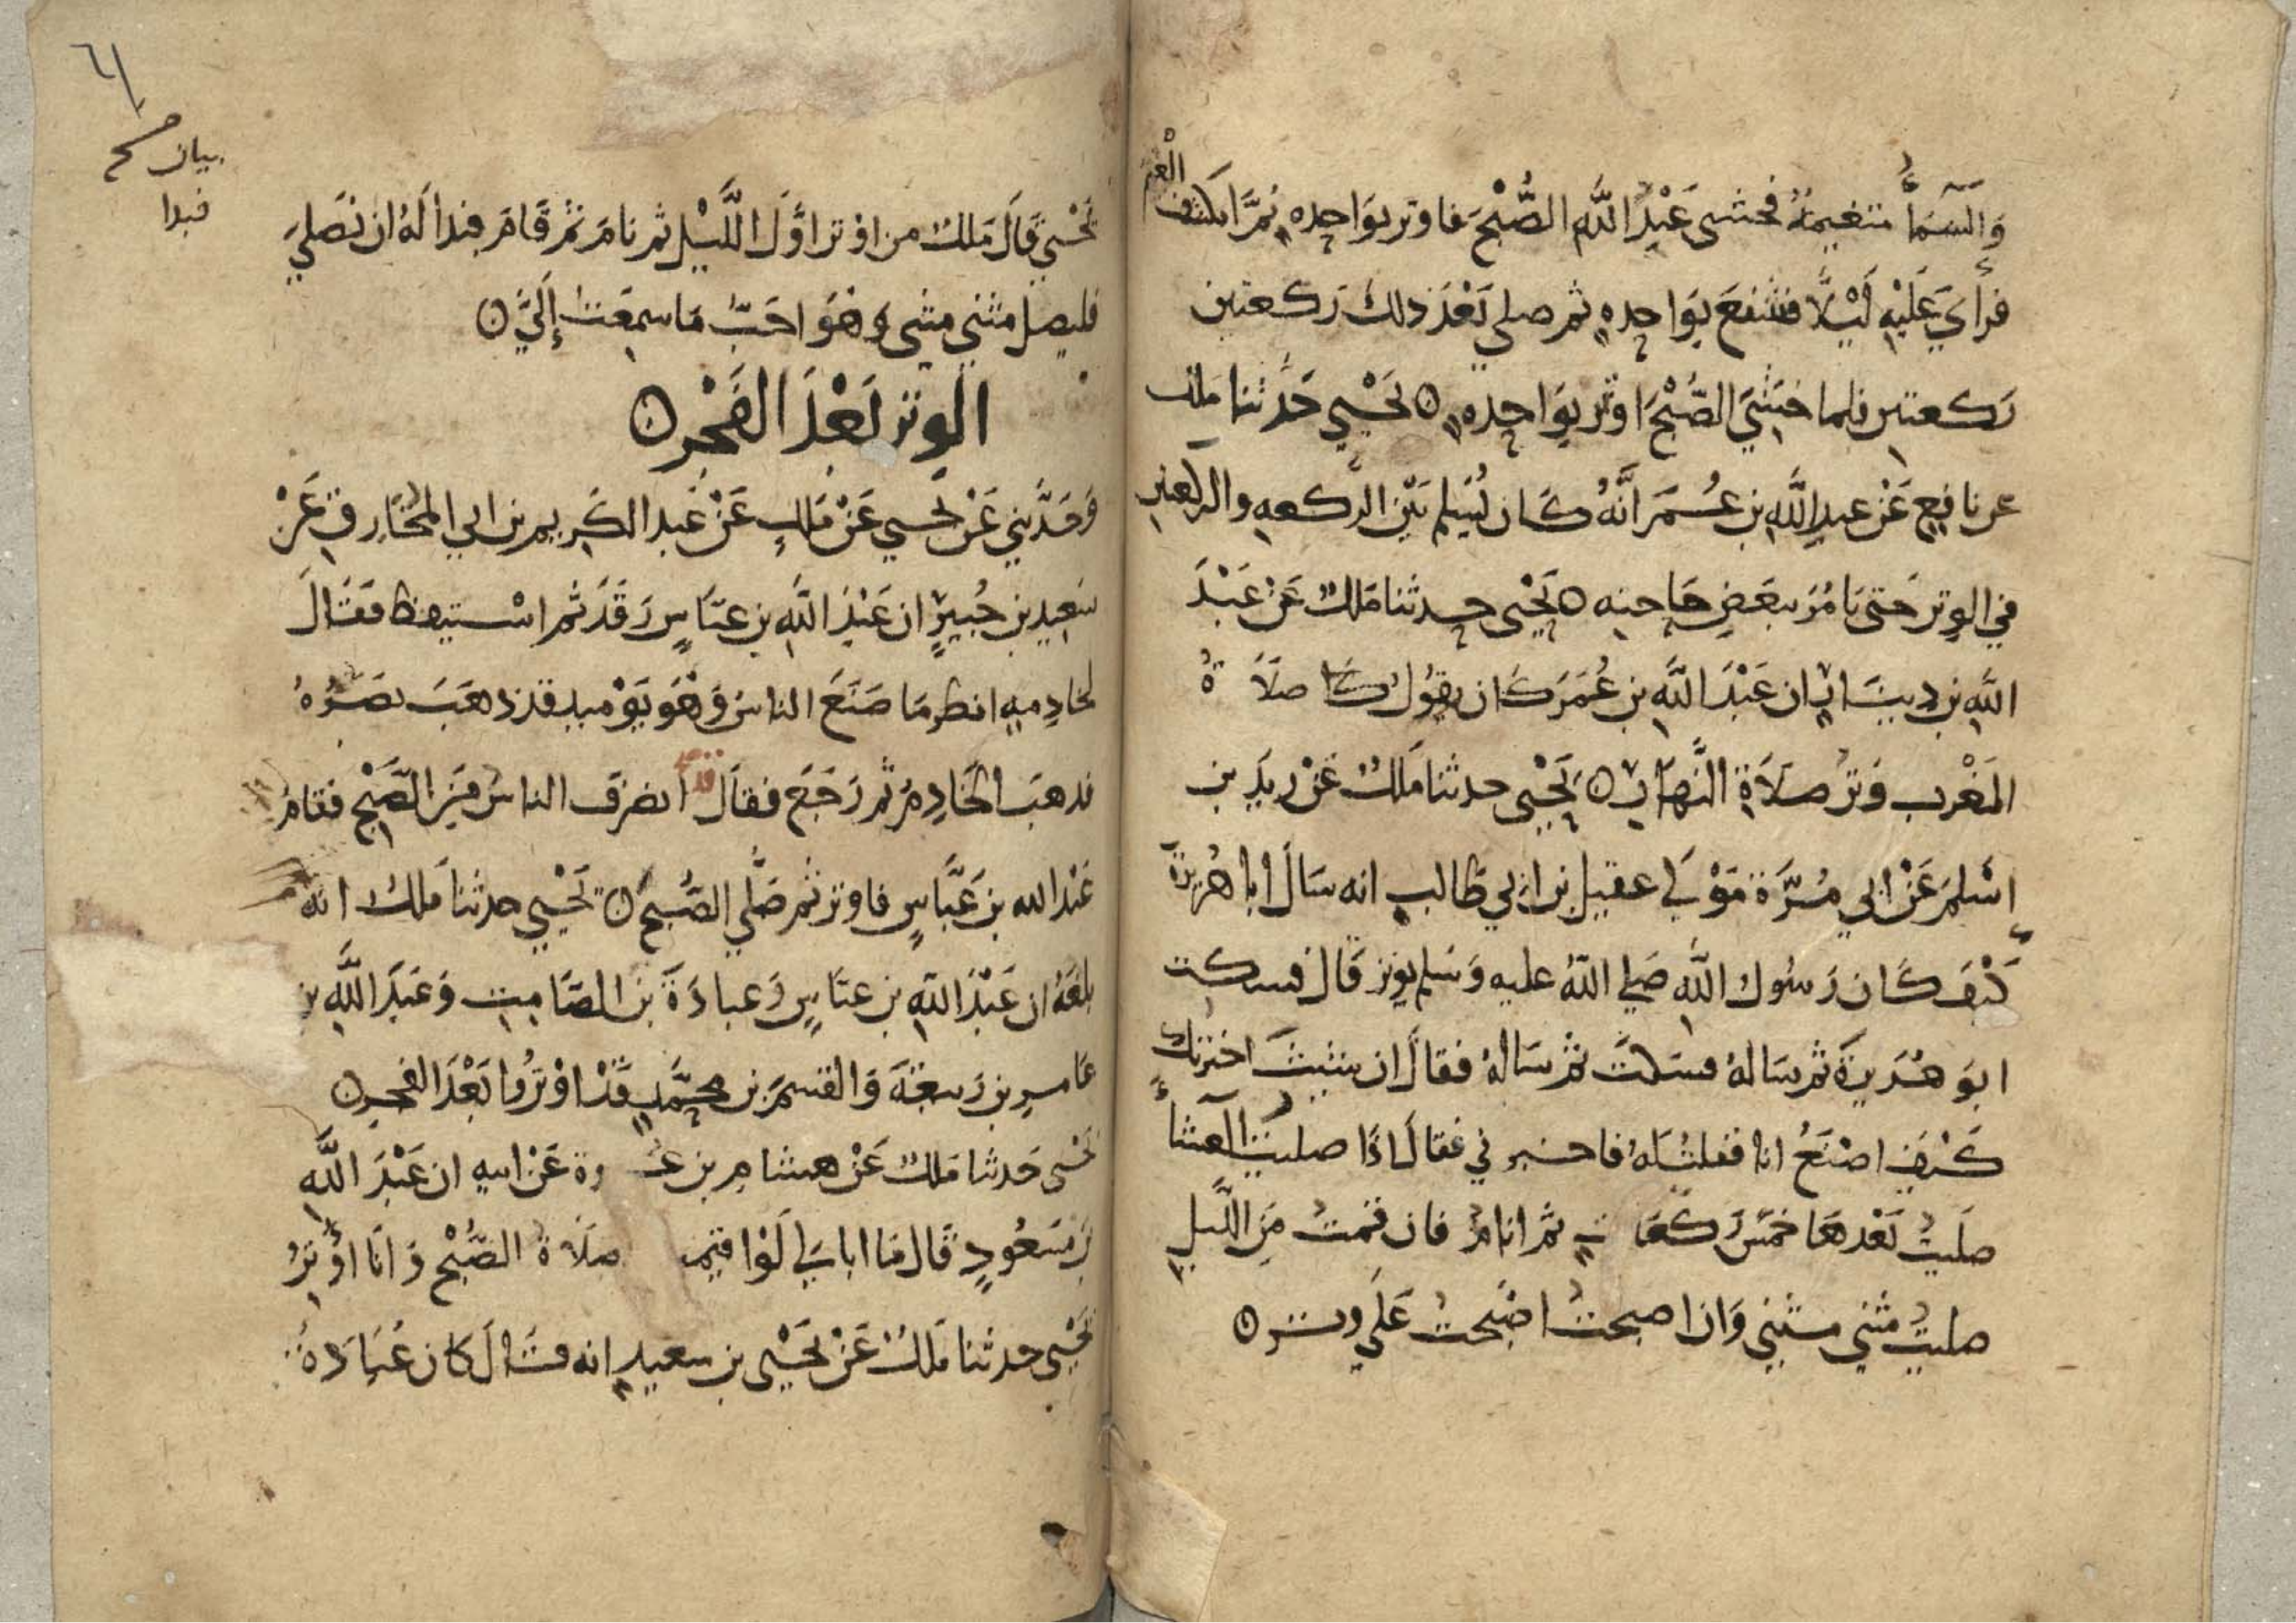 وَالسَّمَآءُ متغيمةٌ فخشى عَبْدُ اللَّهِ الصُّبْحَ فاوتر بوَاحِدهٍ ثمَّ انكشف الْغَيْمُ
فرأى عَلَيْهِ لَيْلًا فشفعَ بوَاحِدهٍ ثم صلى بَعْدَ ذلكَ رَكعتين
رَكعتين فلما خشَىَ الصُّبْحَ اوتر بوَاحِدهٍ ۞ يَحْيى حَدثنا ملك
عن نافِعٍ عَنْ عبدِ اللَّهِ بن عُمَرَ انَّهُ كَان يُسَلم بَيْن الركعهِ والركعتين
في الوِتر حَتى يَامُرَ ببَعَضِ حَاجتِه ۞ يَحْيى حدثنا مَلكٌ عَنْ عَبْدَ
اللَّهِ بن دِينَارٍ ان عَبْدَ اللَّهِ بن عُمَرَ كَان يقُولُ صَلَاةُ
المَغْربِ وَترُ صَلَاةِ النَّهَارِ ۞ يَحْيى حدثنا مَلكٌ عَنْ زيدِ بن
اسْلمَ عَنْ ابي مُرَّة مَوْلَى عقيل بن ابي طَالبٍ انه سَالَ ابا هُريْرَة
كَيْفَ كَان رَسُول اللَّهِ صَلى اللَّهُ عليه وَسَلم يوتر قَال فسكت
ابوَ هُرَيرةَ ثم سَالهُ فسَكتَ ثمْ سَالهُ فقالَ ان شئتَ اخبرتك
كَيْفَ اصْنَعُ انا فقلتُ لهُ فاخبرني فقالَ اذَا صليْتُ العشآءَ
صلَيتُ بَعْدهَا خمَسَ رَكعَاتٍ ثم انامُ فان قمتُ مِنَ اللَّيلِ
صليتُ مثني مثني وَان اصبحتُ اصْبَحتُ عَلَى وتر ۞
٦١
بيان صح
فبدا
يَحْيي قَالَ مَلكٌ من اوْتر اوَّلَ اللَّيْلِ ثم نامَ ثمْ قَامَ فبدا لَهُ ان يُصَليَ
فليصل مثني مثنى وَهْوَ احَبُّ مَا سمِعَتُ إِلَيَّ ۞
الوِتر بَعْدَ الفَجْرِ ۞
وَحَدَّثني عَنْ يحيى عَنْ مَلكٍ عَنْ عَبد الكَرِيم بن ابي المخَارِقِ عَنْ
سَعِيدِ بن جُبيرٍ ان عَبْدَ اللَّهِ بن عبَّاسٍ رَقدَ ثم اسْتيقظ فقَالَ
لخادِمهِ انظر مَا صَنَعَ الناسُ وَهْوَ يَوْميذ قد ذهَبَ بصَرُهُ
فذهبَ الخَادِمُ ثم رَجَعَ فقالَ قد انصَرَف الناسُ مِنَ الصُّبْحِ فقامَ
عَبْد الله بن عَبَّاسٍ فاوتر ثم صَلَّى الصُّبحَ ۞ يَحْيي حدثنا مَلكٌ انه
بلغَهُ ان عَبْدَ اللَّهِ بن عبَاسٍ وَعبادَةَ بن الصَّامِتِ وَعَبدَ اللَّهِ بن
عَامرِ بن رَبيعَةَ وَالقسمَ بن محمَّدٍ قَدْ اوْترُوا بَعْدَ الفجرِ ۞
يَحْيى حَدثنا مَلكٌ عَنْ هشامِ بن عُروة عَنْ ابيهِ ان عَبْدَ اللَّهِ
بن مَسْعُودٍ قَال مَا ابالي لَوْ اقيمت صَلَاةُ الصُّبْحِ وَانَا اوُترُ
يَحْيى حدثنا مَلكٌ عَنْ يَحْيَى بن سعيدٍ انه قَالَ كَان عُبَادَةُ